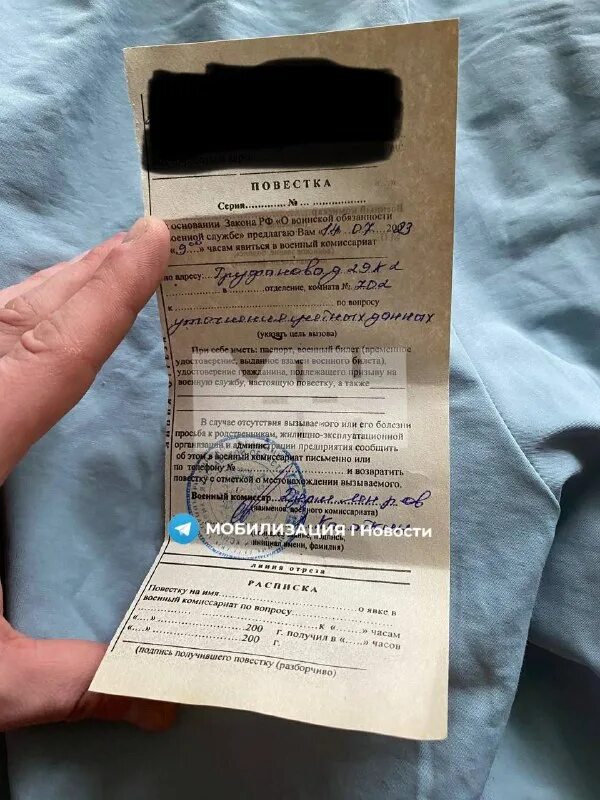 ПОВЕСТКА
Серия............. № ....................
основании Закона РФ «О воинской обязанности
военной службе» предлагаю Вам «14» 07 2023
«9⁰⁰....» часам явиться в военный комиссариат
по адресу Труфанова д. 29 К2
в .............. отделение, комната № 202
к ........................ по вопросу
уточнения учётных данных
(указать цель вызова)
При себе иметь: паспорт, военный билет (временное
удостоверение, выданное взамен военного билета),
удостоверение гражданина, подлежащего призыву на
военную службу, настоящую повестку, а также
В случае отсутствия вызываемого или его болезни
просьба к родственникам, жилищно-эксплуатационной
организации и администрации предприятия сообщить
об этом в военный комиссариат письменно или
по телефону № ..................... и возвратить
повестку с отметкой о местонахождении вызываемого.
Военный комиссар
(наименов. военного комиссариата)
МОБИЛИЗАЦИЯ | Новости
подпись,
инициал имени, фамилия)
линия отреза
РАСПИСКА
Повестку на имя.............................о явке в
военный комиссариат по вопросу
«.....»........................200 г. к «.....» часам
«.....»........................200 г. получил в «.....» часов
(подпись получившего повестку (разборчиво)